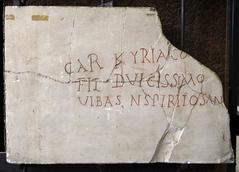 CAR KYRIACO
FIL DVLCISSIMO
VIBAS IN SPIRITO SAN